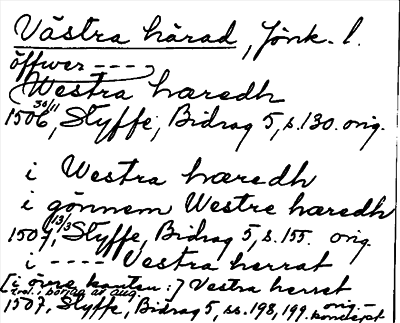 Västra härad, Jönk. l.
öffwer ----
Westra hæredh
1506 30/11, Styffe, Bidrag 5, s. 130. orig.
i Westra hæredh
i gönnem Westre hæredh
1507 13/3, Styffe, Bidrag 5, s. 155. orig.
i ---- Vestra herrat
[i övre kanten:] Vestra herret
1507, Styffe, Bidrag 5, ss. 198, 199. orig.-koncept